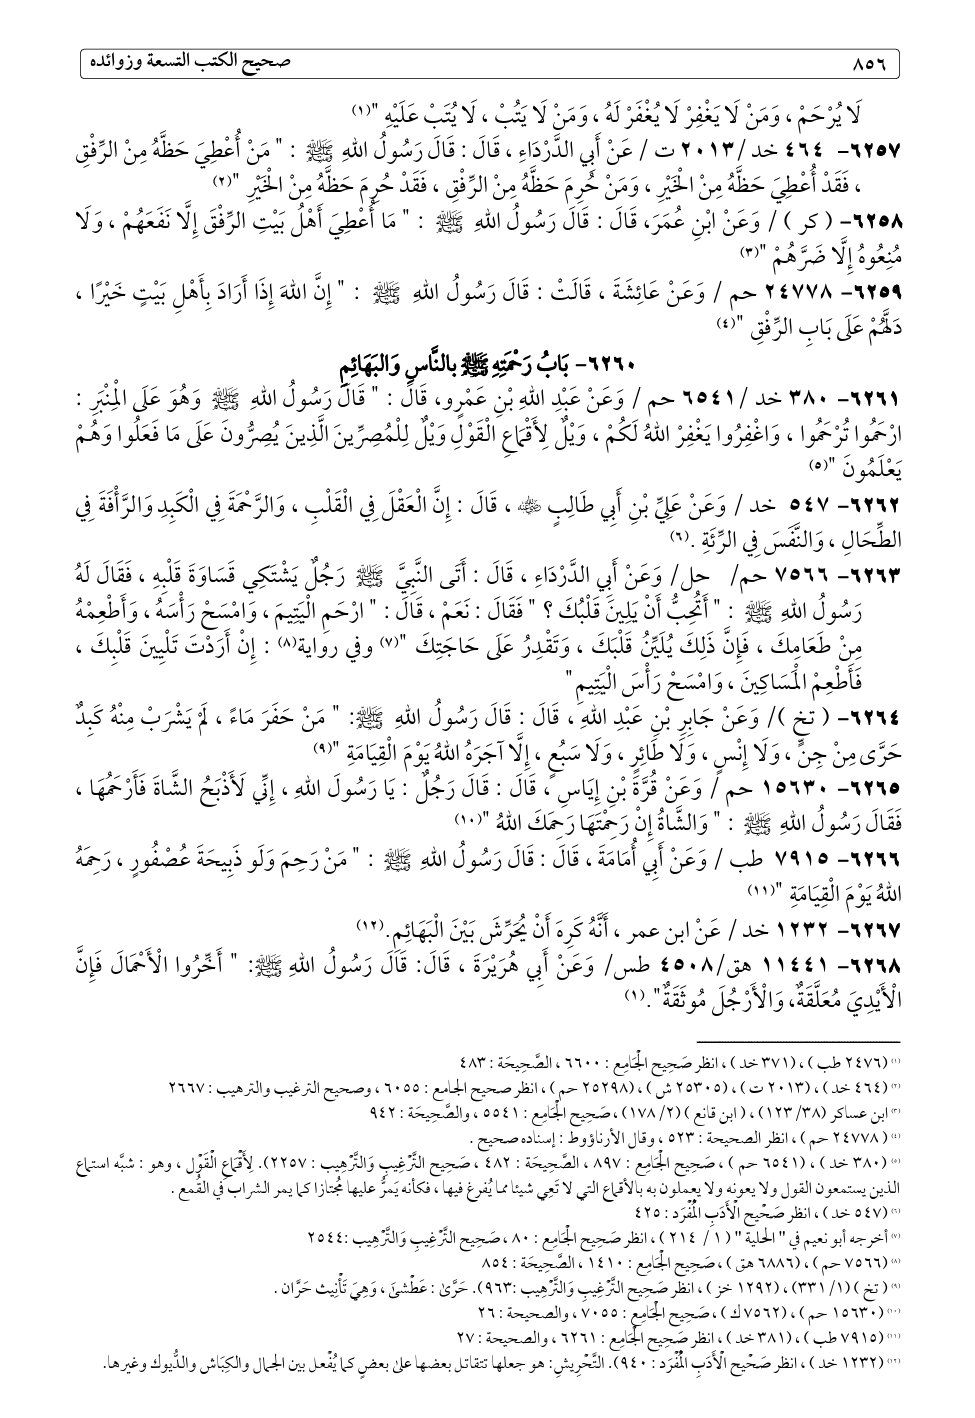 ٨٥٦ صحيح الكتب التسعة وزوائده
لَا يُرْحَمْ ، وَمَنْ لَا يَغْفِرْ لَا يُغْفَرْ لَهُ ، وَمَنْ لَا يَتُبْ ، لَا يُتَبْ عَلَيْهِ "(١)
٦٢٥٧- ٤٦٤ خد /٢٠١٣ ت / عَنْ أَبِي الدَّرْدَاءِ ، قَالَ : قَالَ رَسُولُ اللهِ ﷺ : " مَنْ أُعْطِيَ حَظَّهُ مِنْ الرِّفْقِ
، فَقَدْ أُعْطِيَ حَظَّهُ مِنْ الْخَيْرِ ، وَمَنْ حُرِمَ حَظَّهُ مِنْ الرِّفْقِ ، فَقَدْ حُرِمَ حَظَّهُ مِنْ الْخَيْرِ "(٢)
٦٢٥٨- ( كر ) / وَعَنْ ابْنِ عُمَرَ، قَالَ : قَالَ رَسُولُ اللهِ ﷺ : " مَا أُعْطِيَ أَهْلُ بَيْتٍ الرِّفْقَ إِلَّا نَفَعَهُمْ ، وَلَا
مُنِعُوهُ إِلَّا ضَرَّهُمْ "(٣)
٦٢٥٩- ٢٤٧٧٨ حم / وَعَنْ عَائِشَةَ ، قَالَتْ : قَالَ رَسُولُ اللهِ ﷺ : " إِنَّ اللهَ إِذَا أَرَادَ بِأَهْلِ بَيْتٍ خَيْرًا ،
دَلَّهُمْ عَلَى بَابِ الرِّفْقِ "(٤)
٦٢٦٠- بَابُ رَحْمَتِهِ ﷺ بالنَّاسِ وَالبَهَائِمِ
٦٢٦١- ٣٨٠ خد /٦٥٤١ حم / وَعَنْ عَبْدِ اللهِ بْنِ عَمْرٍو، قَالَ : " قَالَ رَسُولُ اللهِ ﷺ وَهُوَ عَلَى الْمِنْبَرِ :
ارْحَمُوا تُرْحَمُوا ، وَاغْفِرُوا يَغْفِرْ اللهُ لَكُمْ ، وَيْلٌ لِأَقْمَاعِ الْقَوْلِ وَيْلٌ لِلْمُصِرِّينَ الَّذِينَ يُصِرُّونَ عَلَى مَا فَعَلُوا وَهُمْ
يَعْلَمُونَ "(٥)
٦٢٦٢- ٥٤٧ خد / وَعَنْ عَلِيِّ بْنِ أَبِي طَالِبٍ ، قَالَ : إِنَّ الْعَقْلَ فِي الْقَلْبِ ، وَالرَّحْمَةَ فِي الْكَبِدِ وَالرَّأْفَةَ فِي
الطِّحَالِ ، وَالنَّفَسَ فِي الرِّئَةِ .(٦)
٦٢٦٣- ٧٥٦٦ حم/ حل/ وَعَنْ أَبِي الدَّرْدَاءِ ، قَالَ : أَتَى النَّبِيَّ ﷺ رَجُلٌ يَشْتَكِي قَسَاوَةَ قَلْبِهِ ، فَقَالَ لَهُ
رَسُولُ اللهِ ﷺ : " أَتُحِبُّ أَنْ يَلِينَ قَلْبُكَ ؟ " فَقَالَ : نَعَمْ ، قَالَ : " ارْحَمِ الْيَتِيمَ ، وَامْسَحْ رَأْسَهُ ، وَأَطْعِمْهُ
مِنْ طَعَامِكَ ، فَإِنَّ ذَلِكَ يُلَيِّنُ قَلْبَكَ ، وَتَقْدِرُ عَلَى حَاجَتِكَ "(٧) وفي رواية(٨) : إِنْ أَرَدْتَ تَلْيِينَ قَلْبِكَ ،
فَأَطْعِمْ الْمَسَاكِينَ ، وَامْسَحْ رَأْسَ الْيَتِيمِ"
٦٢٦٤- ( تخ )/ وَعَنْ جَابِرِ بْنِ عَبْدِ اللهِ ، قَالَ : قَالَ رَسُولُ اللهِ ﷺ: " مَنْ حَفَرَ مَاءً ، لَمْ يَشْرَبْ مِنْهُ كَبِدٌ
حَرَّى مِنْ جِنٍّ ، وَلَا إِنْسٍ ، وَلَا طَائِرٍ ، وَلَا سَبُعٍ ، إِلَّا آجَرَهُ اللهُ يَوْمَ الْقِيَامَةِ "(٩)
٦٢٦٥- ١٥٦٣٠ حم / وَعَنْ قُرَّةَ بْنِ إِيَاسٍ ، قَالَ : قَالَ رَجُلٌ : يَا رَسُولَ اللهِ ، إِنِّي لَأَذْبَحُ الشَّاةَ فَأَرْحَمُهَا ،
فَقَالَ رَسُولُ اللهِ ﷺ : " وَالشَّاةُ إِنْ رَحِمْتَهَا رَحِمَكَ اللهُ "(١٠)
٦٢٦٦- ٧٩١٥ طب / وَعَنْ أَبِي أُمَامَةَ ، قَالَ : قَالَ رَسُولُ اللهِ ﷺ : " مَنْ رَحِمَ وَلَو ذَبِيحَةَ عُصْفُورٍ ، رَحِمَهُ
اللهُ يَوْمَ الْقِيَامَةِ "(١١)
٦٢٦٧- ١٢٣٢ خد / عَنْ ابن عمر ، أَنَّهُ كَرِهَ أَنْ يُحَرِّشَ بَيْنَ الْبَهَائِمِ.(١٢)
٦٢٦٨- ١١٤٤١ هق/٤٥٠٨ طس/ وَعَنْ أَبِي هُرَيْرَةَ ، قَالَ: قَالَ رَسُولُ اللهِ ﷺ: " أَخِّرُوا الْأَحْمَالَ فَإِنَّ
الْأَيْدِيَ مُعَلَّقَةٌ، وَالْأَرْجُلَ مُوثَقَةٌ".(١)
(١) (٢٤٧٦ طب ) ، (٣٧١ خد ) ، انظر صَحِيح الْجَامِع : ٦٦٠٠ ، الصَّحِيحَة : ٤٨٣
(٢) (٤٦٤ خد ) ، (٢٠١٣ ت ) ، (٢٥٣٠٥ ش ) ، (٢٥٢٩٨ حم ) ، انظر صحيح الجامع : ٦٠٥٥ ، وصحيح الترغيب والترهيب : ٢٦٦٧
(٣) ابن عساكر (١٢٣/٣٨) ، ( ابن قانع ) (١٧٨/٢) ، صَحِيح الْجَامِع : ٥٥٤١ ، والصَّحِيحَة : ٩٤٢
(٤) ( ٢٤٧٧٨ حم ) ، انظر الصحيحة : ٥٢٣ ، وقال الأرناؤوط : إسناده صحيح .
(٥) (٣٨٠ خد ) ، (٦٥٤١ حم ) ، صَحِيح الْجَامِع : ٨٩٧ ، الصَّحِيحَة : ٤٨٢ ، صَحِيح التَّرْغِيبِ وَالتَّرْهِيب : ٢٢٥٧). لِأَقْمَاعِ الْقَوْل ، وهو : شبَّه استماع
الذين يستمعون القول ولا يعونه ولا يعملون به بالأقماع التي لا تَعِي شيئا مما يُفرغ فيها ، فكأنه يَمرُّ عليها مُجتازا كما يمر الشراب في القُمع .
(٦) (٥٤٧ خد ) ، انظر صَحْيح الْأَدَبِ الْمُفْرَد : ٤٢٥
(٧) أخرجه أبو نعيم في " الحلية " ( ١/ ٢١٤ ) ، انظر صَحِيح الْجَامِع : ٨٠ ، صَحِيح التَّرْغِيبِ وَالتَّرْهِيب :٢٥٤٤
(٨) (٧٥٦٦ حم ) ، (٦٨٨٦ هق ) ، صَحِيح الْجَامِع : ١٤١٠ ، الصَّحِيحَة : ٨٥٤
(٩) ( تخ ) (٣٣١/١) ، (١٢٩٢ خز ) ، انظر صَحِيح التَّرْغِيبِ وَالتَّرْهِيب :٩٦٣). حَرَّىٰ : عَطْشَىٰ ، وَهِيَ تَأْنِيث حَرَّان .
(١٠) (١٥٦٣٠ حم ) ، (٧٥٦٢ك ) ، صَحِيح الْجَامِع : ٧٠٥٥ ، والصحيحة : ٢٦
(١١) (٧٩١٥ طب ) ، (٣٨١ خد ) ، انظر صَحِيح الْجَامِع : ٦٢٦١ ، والصحيحة : ٢٧
(١٢) (١٢٣٢ خد ) ، انظر صَحْيح الْأَدَبِ الْمُفْرَد : ٩٤٠). التَّحْرِيشِ: هو جعلها تتقاتل بعضها علىٰ بعضٍ كما يُفْعل بين الجمال والكِبَاش والدُّيوك وغيرها.